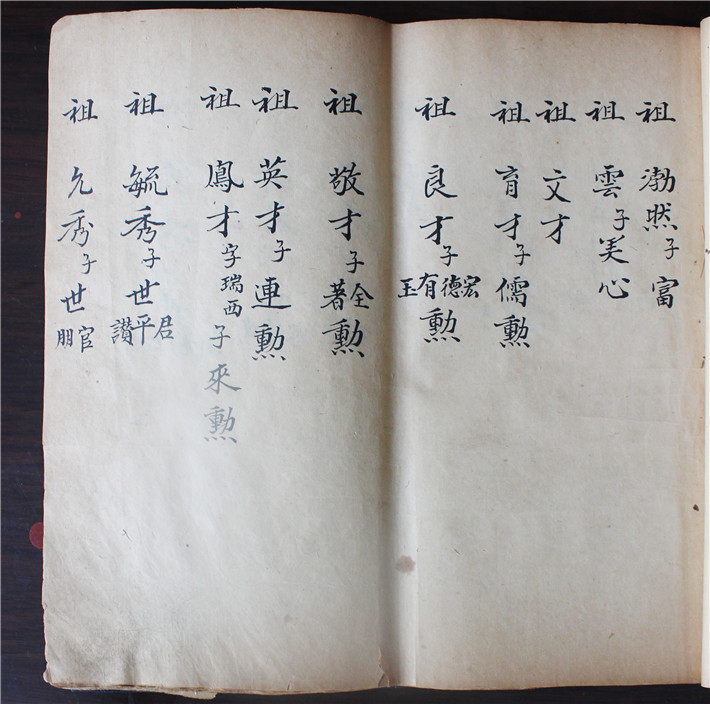 祖 渤然子富
祖 雲子美心
祖 文才
祖 育才子儒勲
祖 良才子宏德有玉勲
祖 敬才子全著勲
祖 英才子連勲
祖 鳳才字瑞西子來勲
祖 毓秀子世君平讚
祖 允秀子世官朋